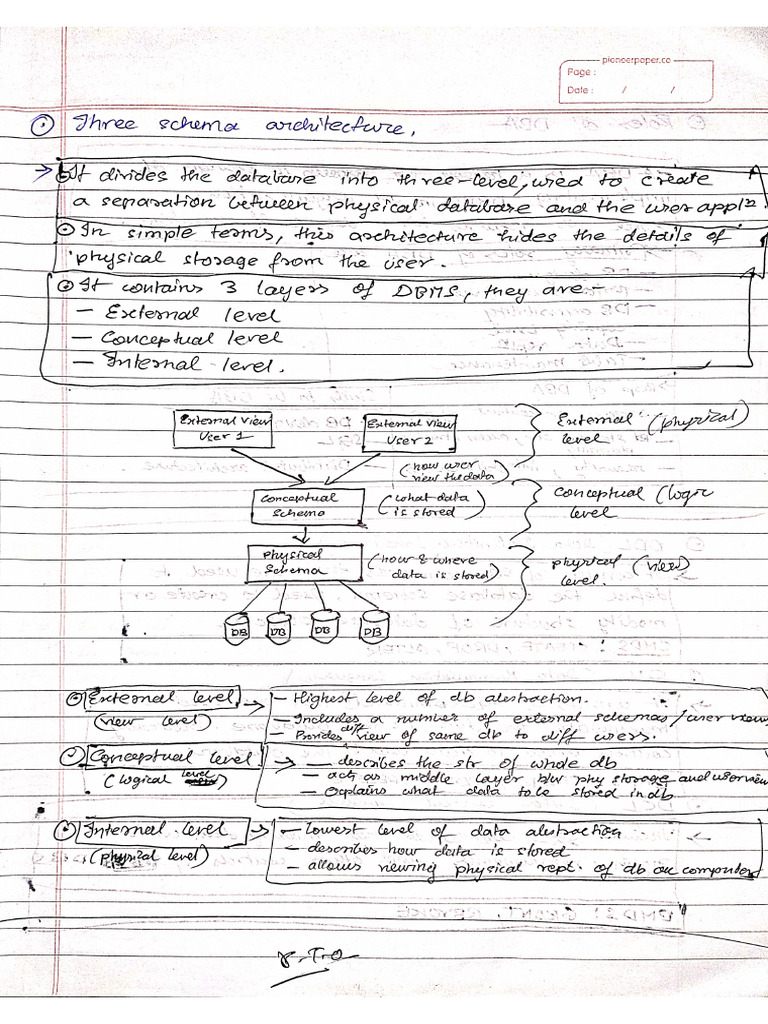 pioneerpaper.co
Page :
Date : / /
Three schema architecture.
It divides the database into three-level, used to create
a separation between physical database and the user appl
In simple terms, this architecture hides the details of
physical storage from the user.
It contains 3 layers of DBMS, they are-
- External level
- Conceptual level
- Internal level.
External View User 1
External View User 2
External (physical) level
(how user view the data)
Conceptual Schema
(what data is stored)
conceptual (logic level
Physical Schema
(how & where data is stored)
physical (view) level.
DB DB DB DB
External level
(view level)
- Highest level of db abstraction.
- Includes a number of external schemas / user view
- Provides diff view of same db to diff users.
Conceptual level
(logical level)
- describes the str of whole db
- acts as middle layer b/w phy storage and userview
- explains what data to be stored in db
Internal level
(physical level)
- lowest level of data abstraction
- describes how data is stored
- allows viewing physical rept. of db on component
P.T.O